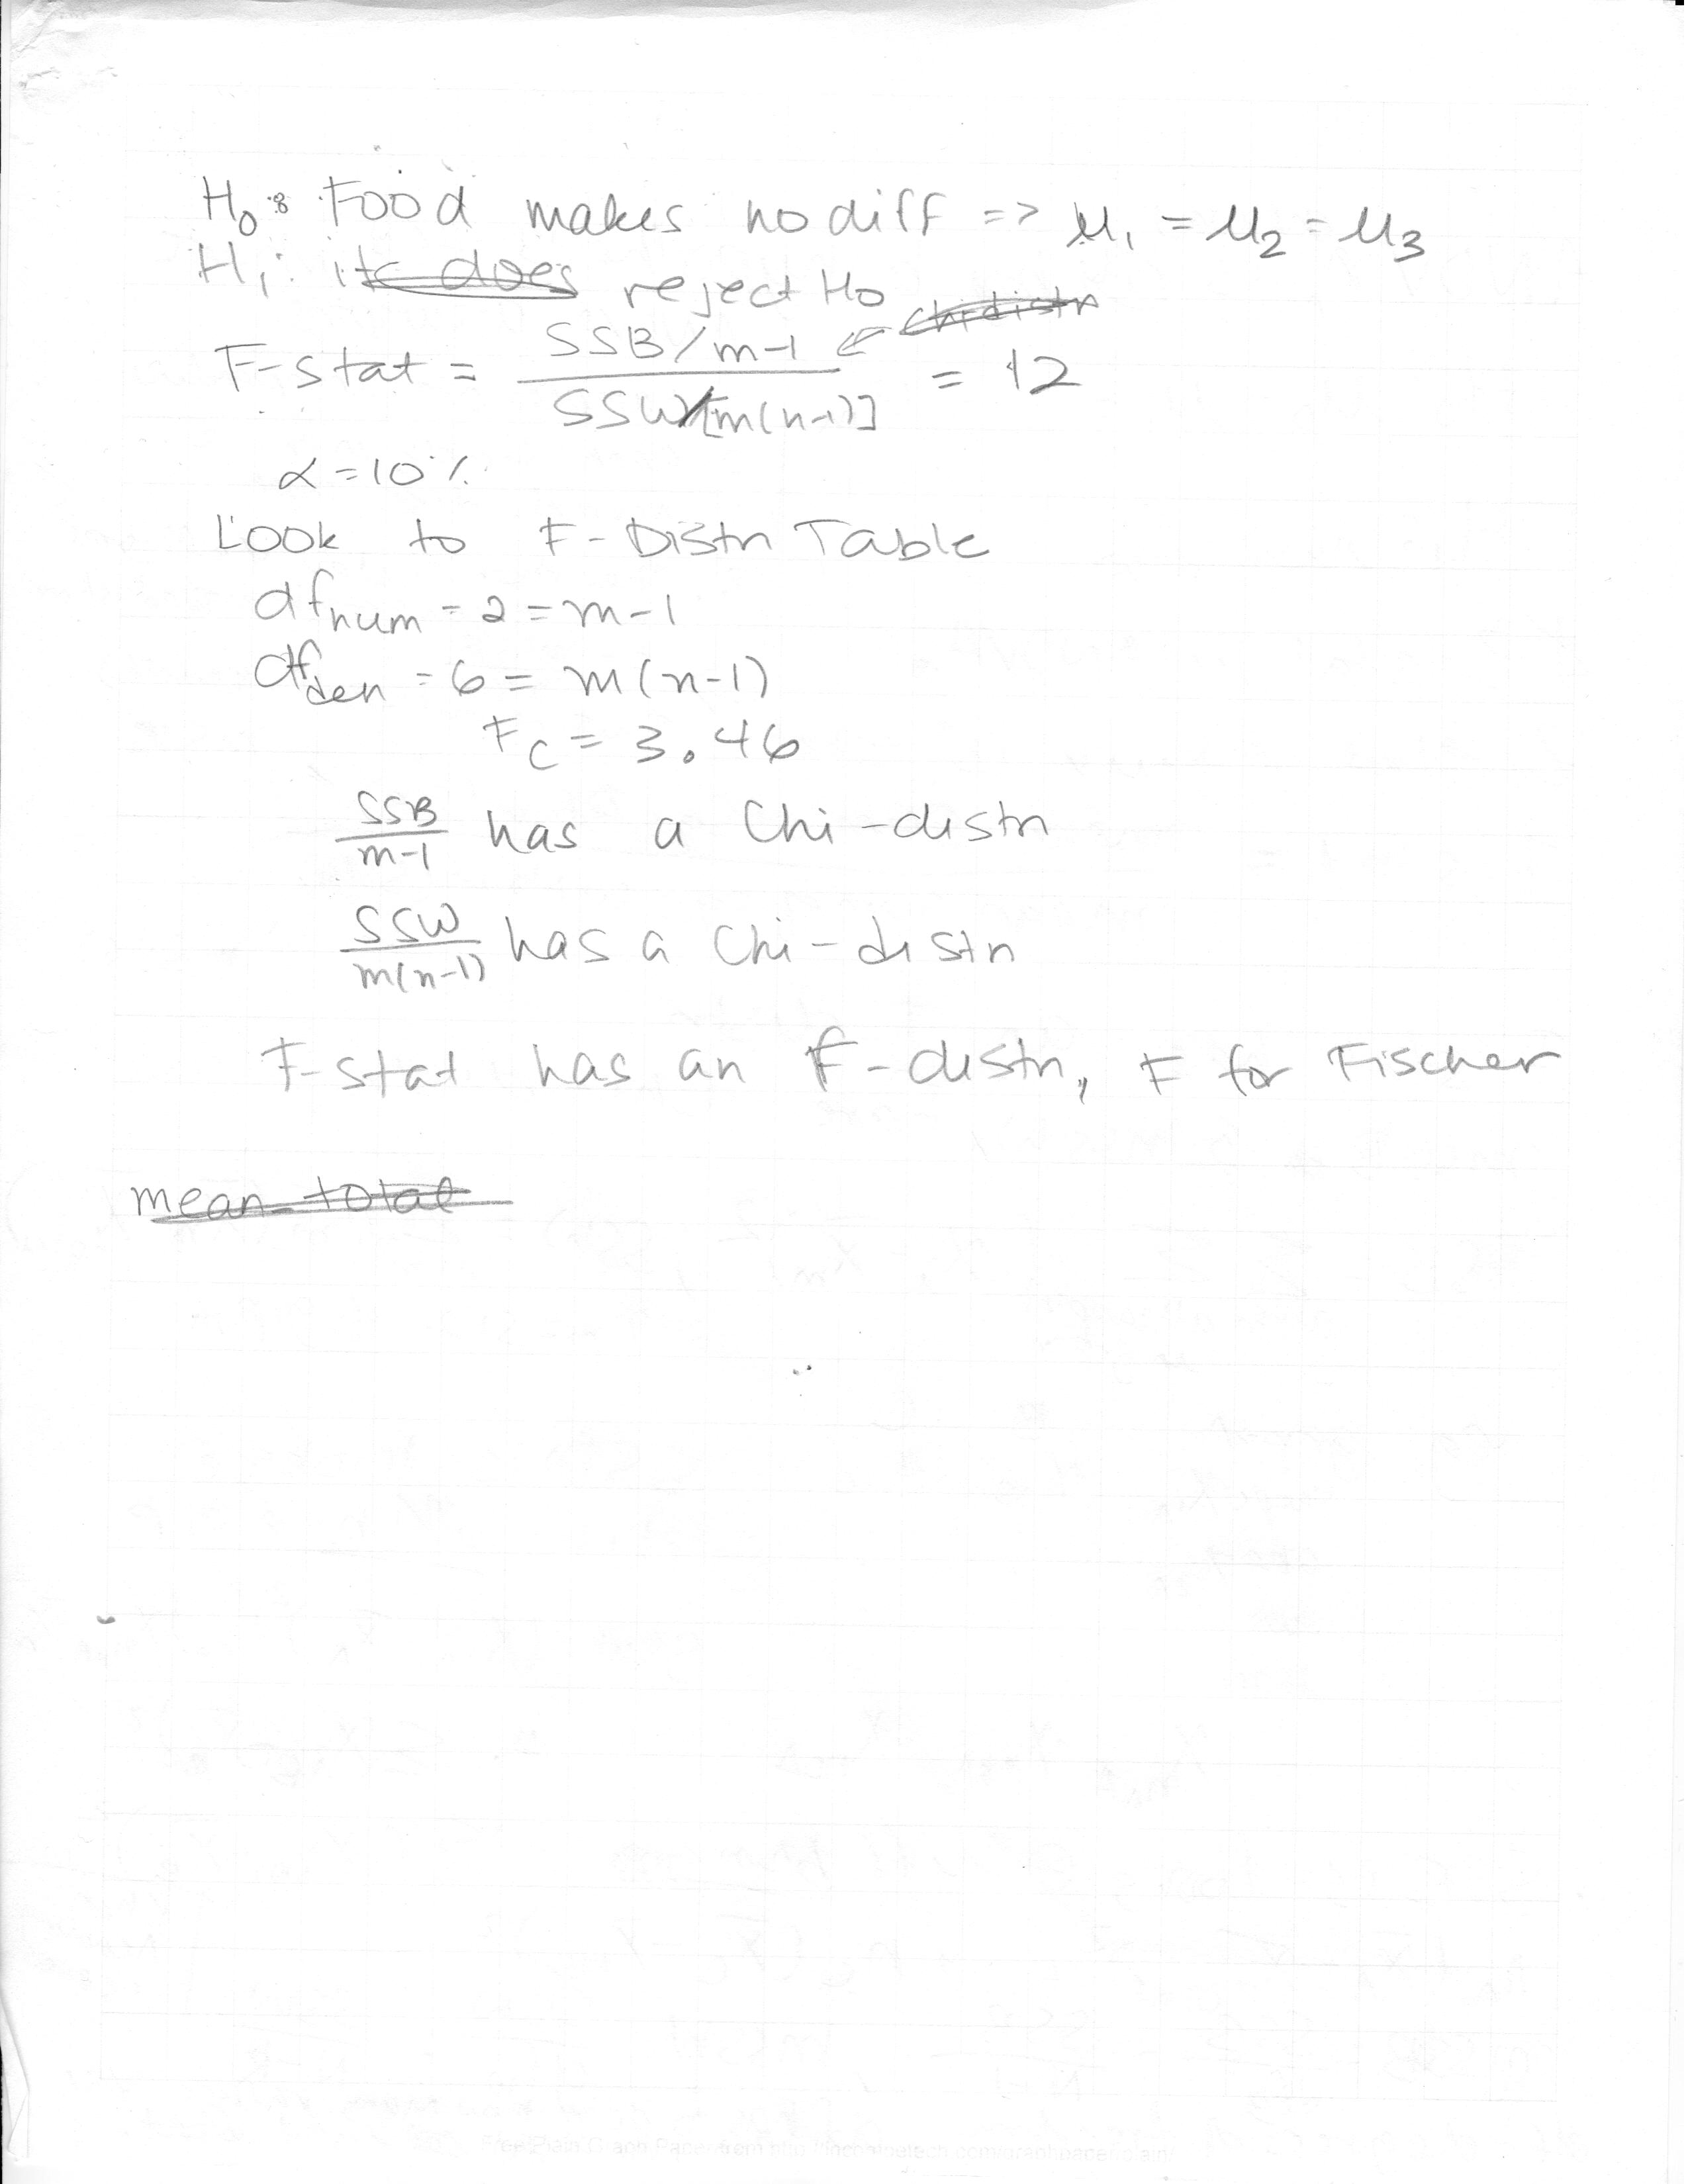 H₀: Food makes no diff => μ₁ = μ₂ = μ₃
H₁: it does reject Ho
F-stat = SSB/m-1 / SSW/[m(n-1)] <= chi distn = 12
α = 10%
Look to F-Distn Table
df num = 2 = m-1
df den = 6 = m(n-1)
Fc = 3.46
SSB/m-1 has a Chi-distn
SSW/m(n-1) has a Chi-distn
F-stat has an F-distn, F for Fischer
mean total